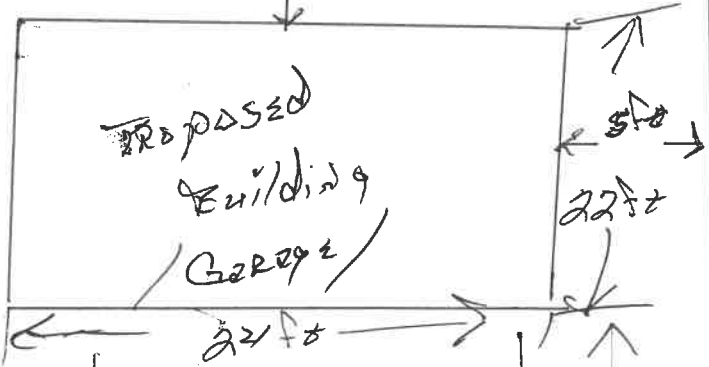 Proposed
Building
(Garage)
5ft
22ft